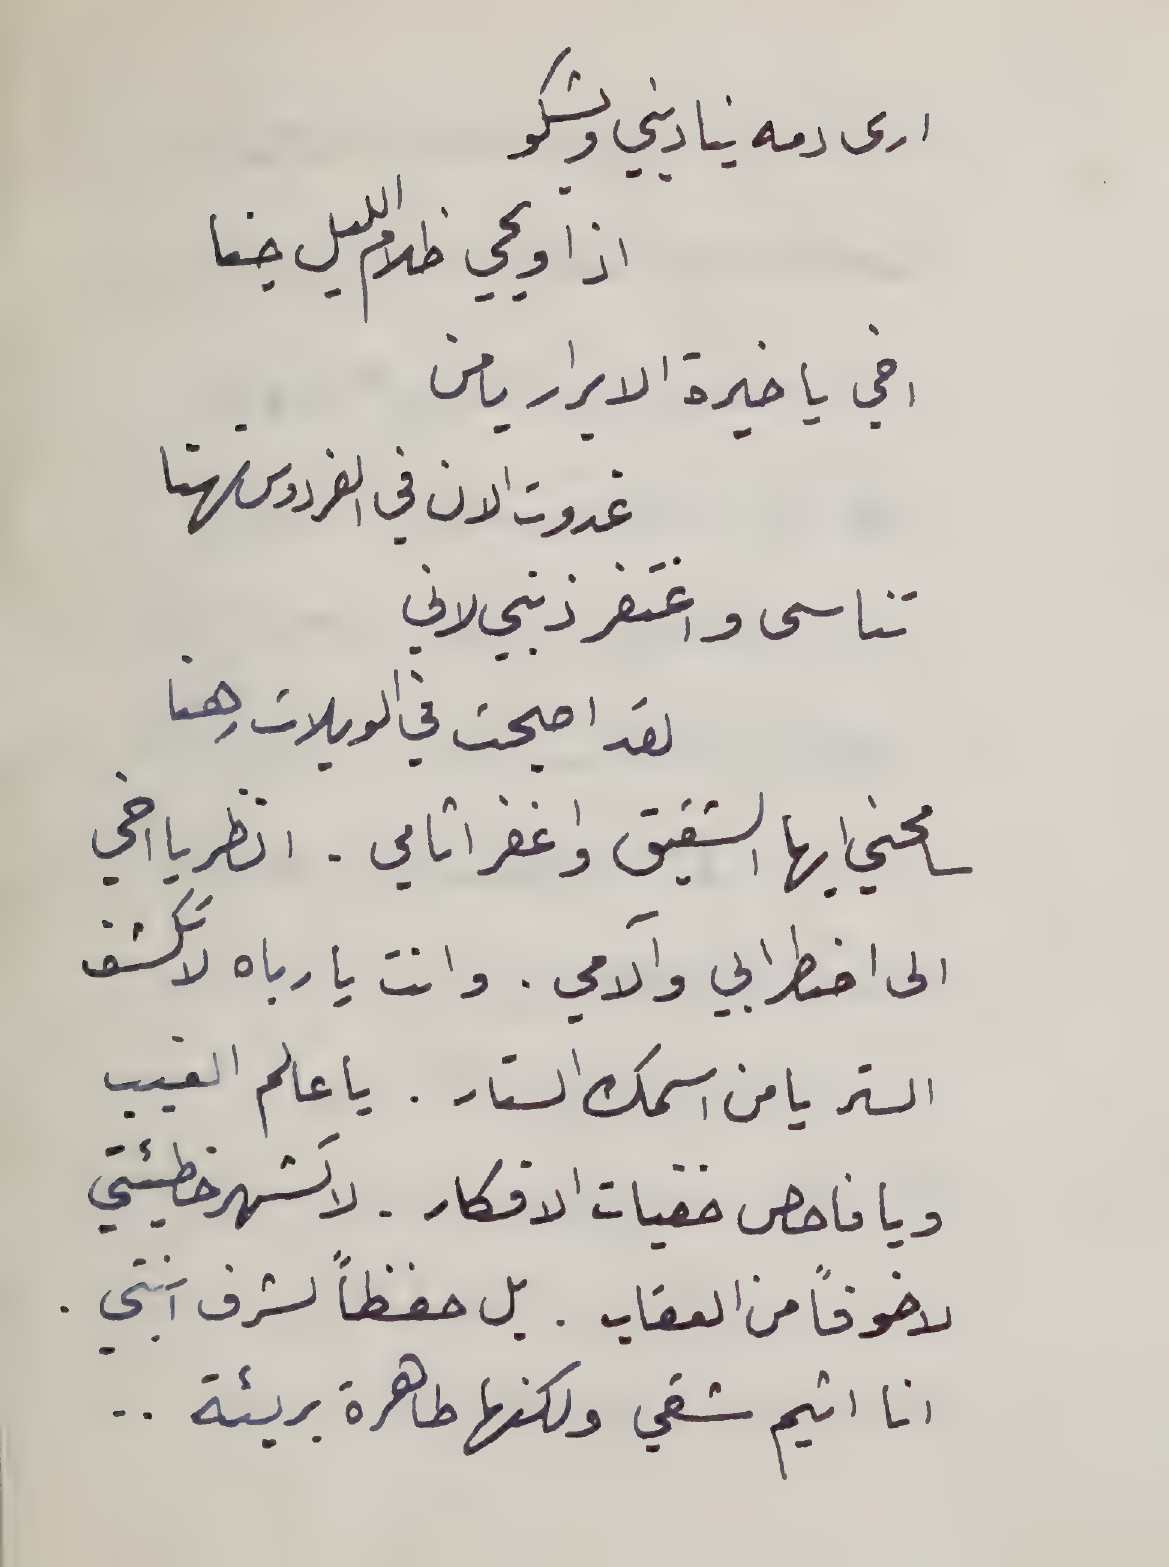 ارى دمه يناديني ويشكو
اذا ويحي ظلام الليل جنا
اخي يا خيرة الابرار يا من
غدوت الان في الفردوس تهنا
تناسى واغتفر ذنبي لاني
لقد اصبحت في الويلات رهنا
سامحني ايها الشقيق واغفر اثامي . انظر يا اخي
الى اضطرابي وآلامي . وانت يا رباه لا تكشف
الستر يا من اسمك الستار . يا عالم الغيب
ويا فاحص خفيات الافكار . لا تشهر خطيئتي
لا خوفاً من العقاب . بل حفظاً لشرف آبنتي .
انا اثيم شقي ولكنها طاهرة بريئة ..